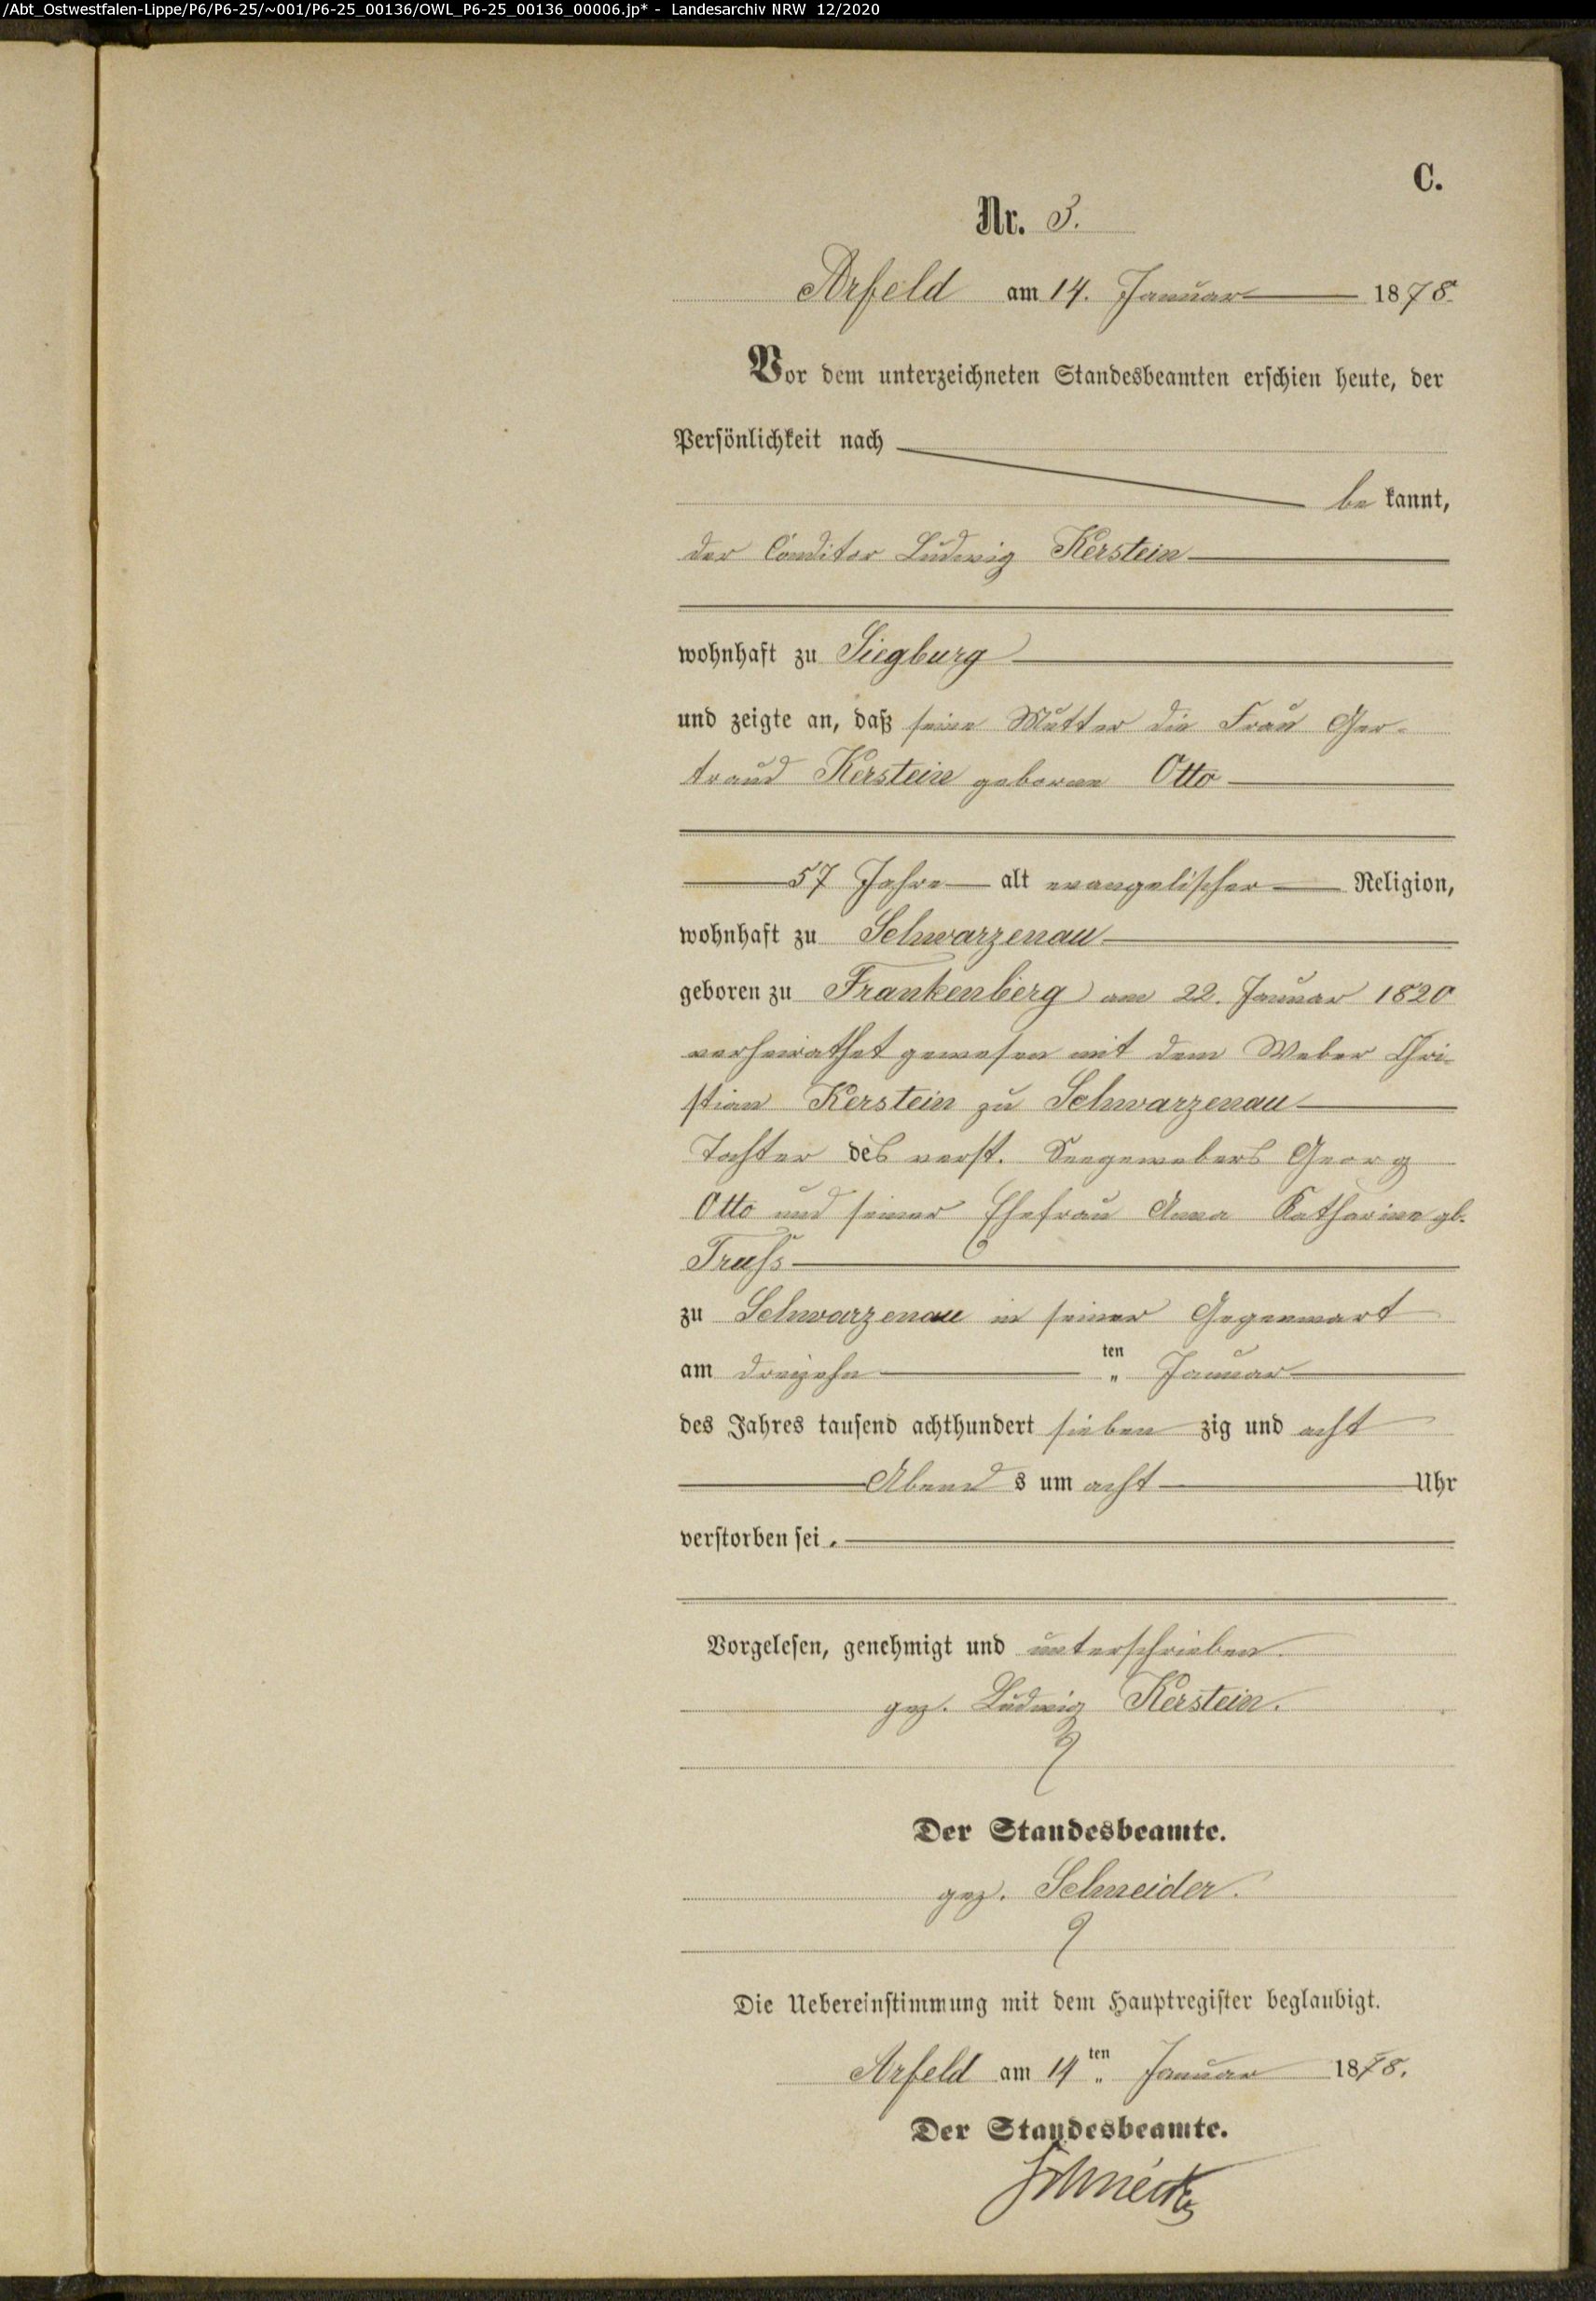 /Abt_Ostwestfalen-Lippe/P6/P6-25/~001/P6-25_00136/OWL_P6-25_00136_00006.jp* - Landesarchiv NRW 12/2020
C.
Nr. 3.
Arfeld am 14. Januar 1878.
Vor dem unterzeichneten Standesbeamten erschien heute, der
Persönlichkeit nach
be kannt,
der Conditor Ludwig Kerstein
wohnhaft zu Siegburg
und zeigte an, daß seine Mutter die Frau Ger-
traud Kerstein geborne Otto
57 Jahre alt evangelischer Religion,
wohnhaft zu Schwarzenau
geboren zu Frankenberg am 22. Januar 1820
verheirathet gewesen mit dem Weber Chri-
stian Kerstein zu Schwarzenau
Tochter des verst. Georg
Otto und seiner Ehefrau Anna Katharine gb.
zu Schwarzenau in seiner Gegenwart
am dreizehn ten Januar
des Jahres tausend achthundert sieben zig und acht
Abend s um acht Uhr
verstorben sei.
Vorgelesen, genehmigt und unterschrieben.
gez. Ludwig Kerstein.
Der Standesbeamte.
gez. Schneider.
Die Uebereinstimmung mit dem Hauptregister beglaubigt.
Arfeld am 14 ten Januar 1878.
Der Standesbeamte.
Schneider